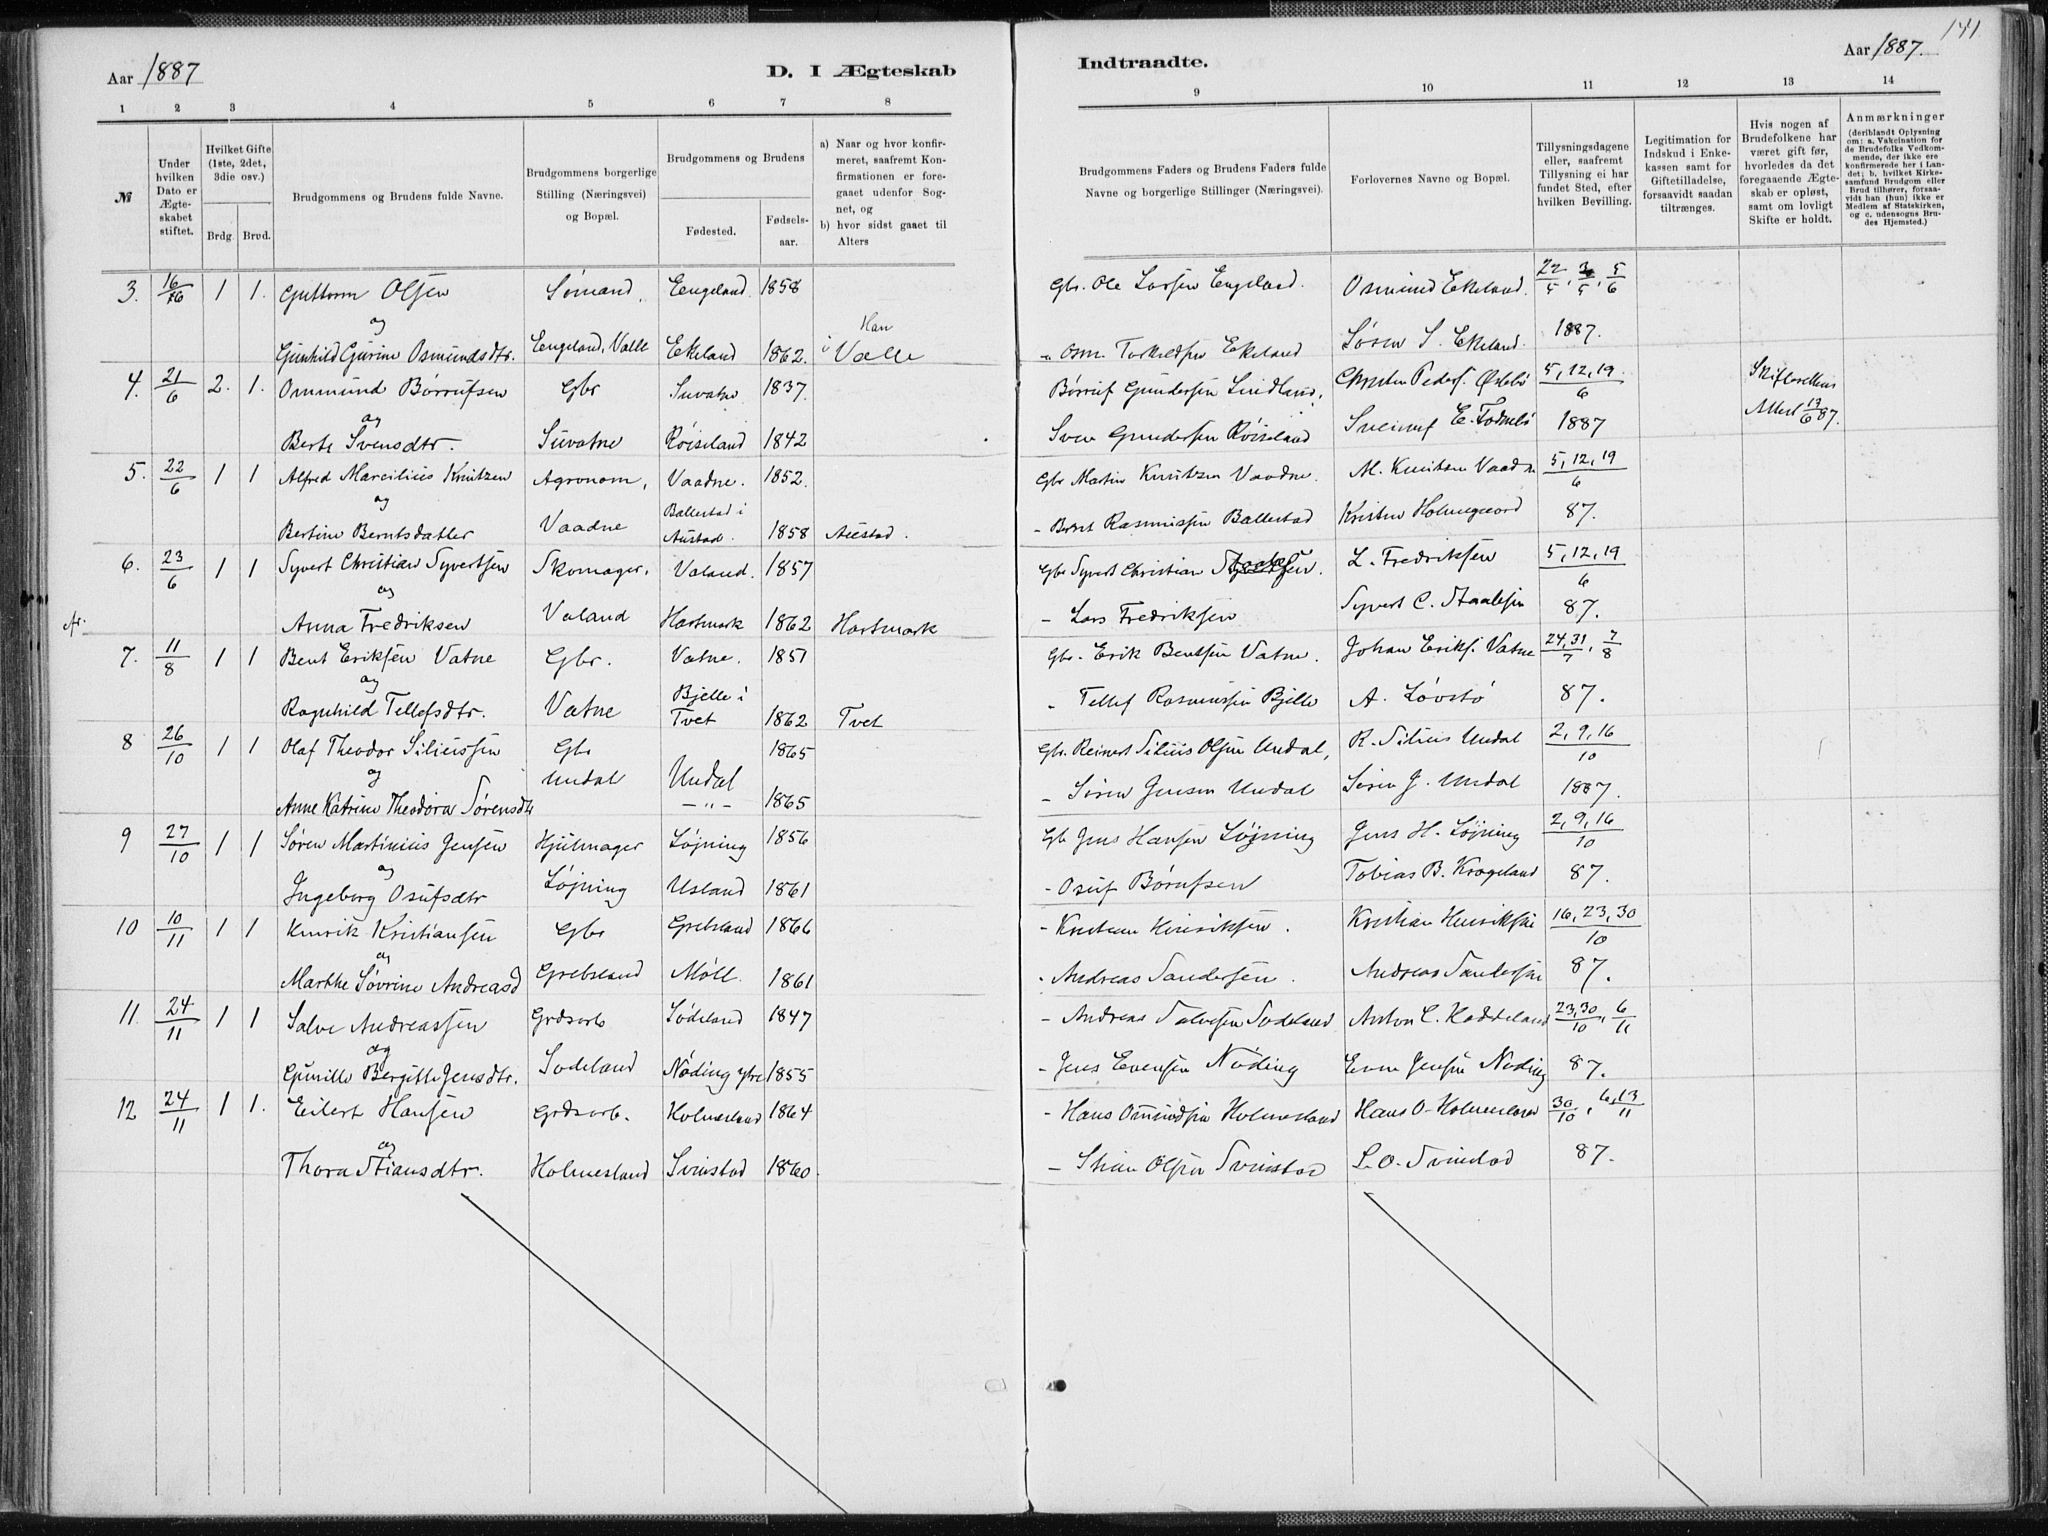 141
Aar 1887
D. I Ægteskab
Indtraadte.
Aar 1887.
1 2 3 4 5 6 7 8 9 10 11 12 13 14
№
Under hvilken Dato er Ægteskabet stiftet.
Hvilket Gifte (1ste, 2det, 3die osv.)
Brdg. Brud.
Brudgommens og Brudens fulde Navne.
Brudgommens borgerlige Stilling (Næringsvei) og Bopæl.
Brudgommens og Brudens
Fødested.
Fødsels-aar.
a) Naar og hvor konfirmeret, saafremt Konfirmationen er foregaaet udenfor Sognet, og
b) hvor sidst gaaet til Alters
Brudgommens Faders og Brudens Faders fulde Navne og borgerlige Stillinger (Næringsvei).
Forlovernes Navne og Bopæl.
Tillysningsdagene eller, saafremt Tillysning ei har fundet Sted, efter hvilken Bevilling.
Legitimation for Indskud i Enkekassen samt for Giftetilladelse, forsaavidt saadan tiltrænges.
Hvis nogen af Brudefolkene har været gift før, hvorledes da det foregaaende Ægteskab er opløst, samt om lovligt Skifte er holdt.
Anmærkninger
(deriblandt Oplysning om: a. Vakcination for de Brudefolks Vedkommende, der ikke ere konfirmerede her i Landet; b. hvilket Kirkesamfund Brudgom eller Brud tilhører, forsaavidt han (hun) ikke er Medlem af Statskirken, og c. udensogns Brudes Hjemsted.)
3. 16/6 1 1. Guttorm Olsen Sømand, Eengeland 1858 Gbr. Ole Larsen Engeland. Osmund Ekeland. 22/5, 5/6
og Han
Gunhild Gurine Osmundsdtr. Eengeland, Valle Ekeland 1862. i Valle " Osm. Torkeldsen Ekeland Søren S. Ekeland. 1887.
4. 21/6 2. 1. Ommund Børrufsen Gbr Suvatne 1837. Børruf Gundersen Lindland, Christen Peders. Øslebø 5, 12, 19./6
og
Berte Svensdtr. Suvatne Röiseland 1842 Sven Gundersen Röiseland 1887 13/6 87.
5. 22/6 1 1 Alfred Marcilius Knutzen Agronom, Vaadne. 1852. Gbr Martin Knutzen Vaadne. M. Knutsen Vaadn 5, 12, 19/6
og
Bertine Berntsdatter Vaadne Ballestad i Austad. 1858 Auestad. - Bernt Rasmussen Ballestad Kristen Holmegaard 87.
6. 23/6 1 1 Syvert Christian Syvertsen Skomager, Valand. 1857 Gbr Syvert Christian L. Fredriksen 5, 12, 19/6
og
Anna Fredriksen Valand Hartmark 1862 Hartmark - Lars Fredriksen Syvert C. Staalesen 87.
7. 11/8 1 1 Bent Eriksen Vatne Gbr. Vatne. 1851 Gbr. Erik Bentsen Vatne. Johan Eriks. Vatne 24,31/7, 7/8
og
Ragnhild Tellefsdtr. Vatne Bjelle i Tvet 1862 Tvet " Tellef Rasmussen Bjelle A. Løvstø 87.
8 26/10 1 1 Olaf Theodor Siliussen Gbr 1865 Gbr. Reinert Silius Olsen Undal, R. Silius Undal 2, 9, 16/10
og Undal Undal
Anne Katrine Theodora Sørensdtr —"— 1865 - Sören Jensen Undal Sören J. Undal 1887.
9 27/10 1 1 Søren Martinius Jensen Hjulmager Løjning 1856 Gbr Jens Hansen Løjning Jens H. Løjning 2, 9, 16/10
og
Ingeborg Osufsdtr Løjning Usland 1861 - Osuf Børufsen Tobias B. Krageland 87.
10 10/11 1 1 Henrik Kristiansen Gbr Grebsland 1866 - Kristian Henriksen. Kristian Henriksen 16, 23, 30/10
og
Marthe Søvrine Andreasd Grebsland Møll. 1861 - Andreas Sandersen. Andreas Sandersen 87.
11. 24/11 1 1 Salve Andreassen Grdsarb Lødeland 1847 - Andreas Salvesen Sodeland Anton C. Haddeland 23,30/10, 6/11
og
Gunille Bergitte Jensdtr. Sodeland Nøding ytre 1855 - Jens Evensen Nöding Even Jensen Nöding 87.
12 24/11 1 1. Eilert Hansen Grdsarb. Holmesland 1864 - Hans Omundsen Holmesland Hans O. Holmesland 30/10, 6,13/11
og
Thora Stiansdtr. Holmesland Svinstad 1860. - Stian Olsen Svinstad S. O. Svindad 87.